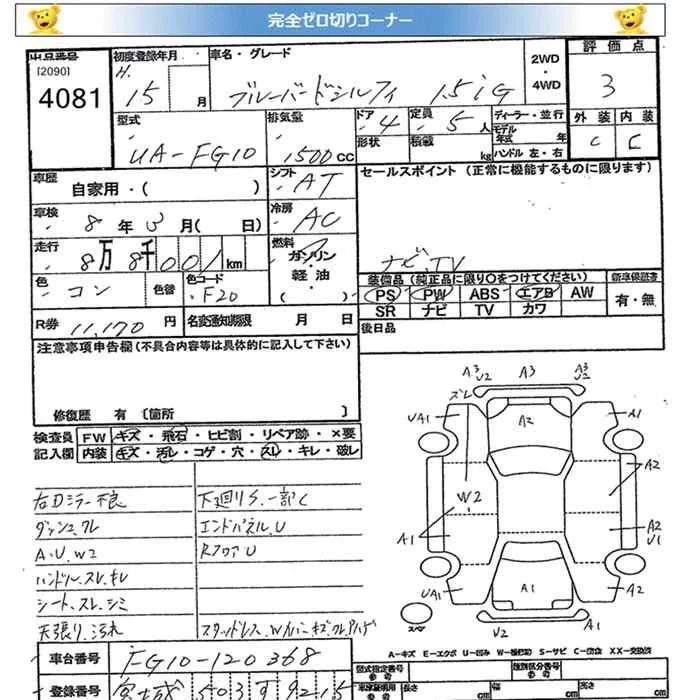 完全ゼロ切りコーナー
出品番号 初度登録年月 車名・グレード 2WD・4WD 評価点
[2090]
4081
H. 15 月 ブルーバードシルフィ 1.5iG 3
型式 排気量 ドア 4 定員 5 人 ディーラー・並行 外装 内装
UA-FG10 1500 CC 形状 積載 kg モデル年式 年 ハンドル 左・右 C C
車歴 自家用・( ) シフト AT セールスポイント (正常に機能するものに限ります)
車検 8 年 3 月 ( 日) 冷房 AC
走行 8万 8千 001 km 燃料 ガソリン・軽油 ( ) ナビ、TV
色 コン 色替 色コード F20
装備品 (純正品に限り○をつけてください) 新車保証書
PS PW ABS エアB AW 有・無
SR ナビ TV カワ
R券 11,170 円 名変通知期限 月 日
後日品
注意事項申告欄 (不具合内容等は具体的に記入して下さい)
修復歴 有 〔箇所 〕
検査員記入欄 FW キズ・飛石・ヒビ割・リペア跡・×要
内装 キズ・汚レ・コゲ・穴・スレ・キレ・破レ
右Dミラー不良 下廻りS.一部C
ダッシュ.ワレ エンドパネル.U
A.U.W2 RフロアU
ハンドル.スレ.キレ
シート.スレ.シミ
天張り.汚れ
A3 U2 A3 A3 U2
ズレ
UA1 A2 A1
W2 A2
A1 A2 U1
UA1 A1 A2
スペア U2
A-キズ E-エクボ U-凹み W-補修跡 S-サビ C-腐食 XX-交換済
車台番号 FG10-120368
型式指定番号 参考 類別区分番号 参考
登録番号 宮城 503 す 9215
車検証明用 参考 長さ cm 幅 cm 高さ cm